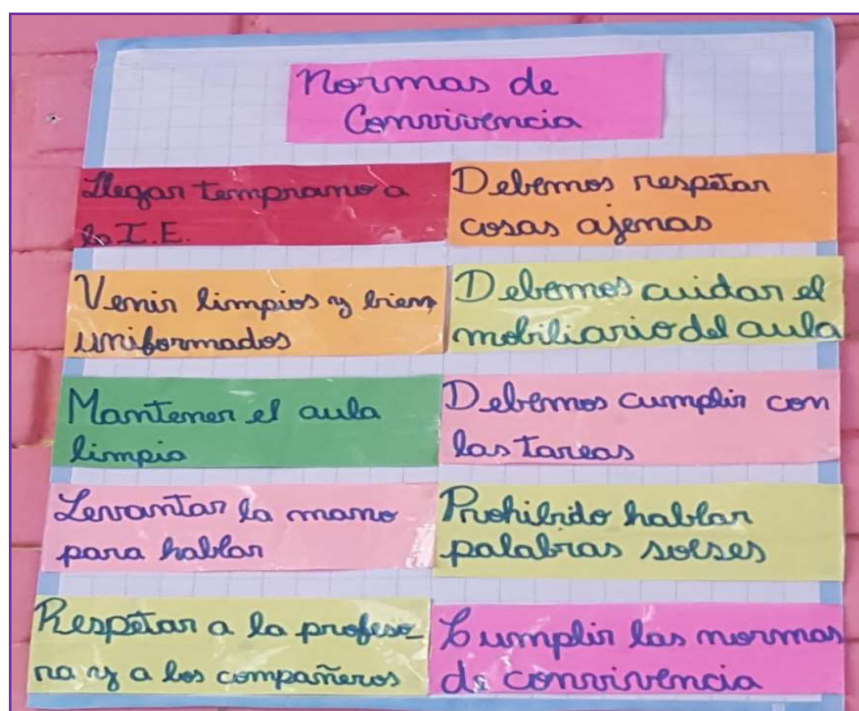 Normas de
Convivencia
Llegar temprano a
la I.E.
Venir limpios y bien
uniformados
Mantener el aula
limpia
Levantar la mano
para hablar
Respetar a la profeso_
ra y a los compañeros
Debemos respetar
cosas ajenas
Debemos cuidar el
mobiliario del aula
Debemos cumplir con
las tareas
Prohibido hablar
palabras soeses
Cumplir las normas
de convivencia